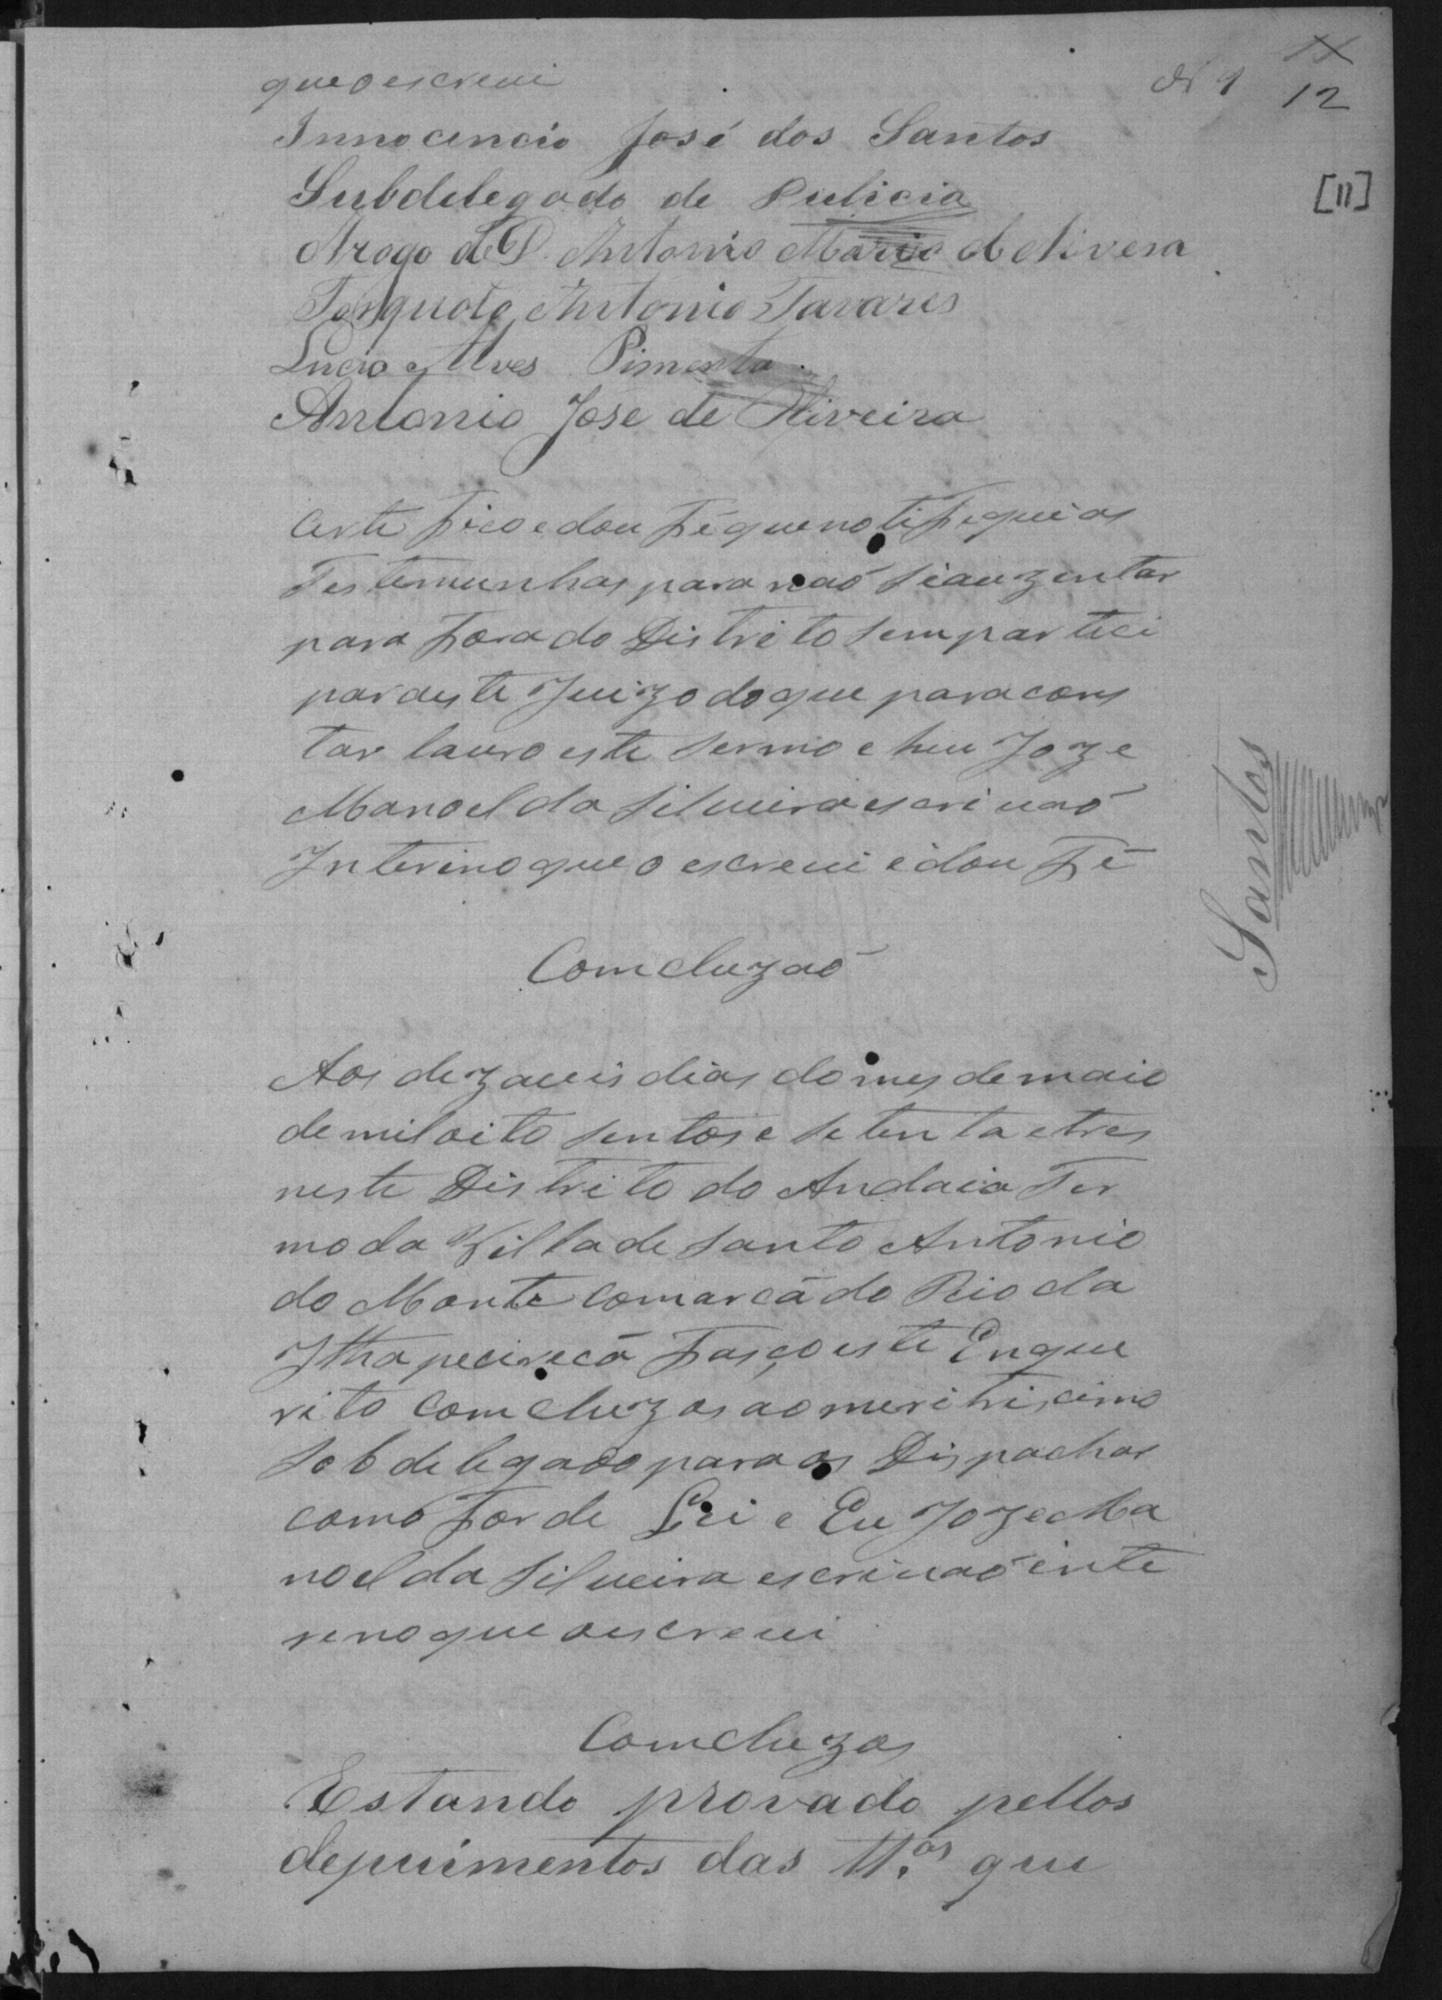 12
[11]
que o escrevi
Innocencio José dos Santos
Subdelegado de Pulicia
Arogo de D. Antonio Maria de Olivera
Torquato Antonio Tavares
Lucio Alves Pimenta
Antonio Jose de Oliveira
Certe fico e dou fé que notifiquei as
Testemunhas para não si auzentar
para fora do Distrito sem partici
par a este Juizo do que para cons
tar lavro este termo e heu Joze
Manoel da Silveira escrivaõ
Interino que o escrevi e dou Fé
Santos
Comcluzaõ
Aos dezaceis dias do mes de maio
de mil oito sentos e setenta e tres
neste Distrito do Andaia Ter
mo da Villa de Santo Antonio
do Monte comarca do Rio da
Ithapecireca Fasço este Enque
rito comcluzos ao meritricimo
sobdelegado para os Dispachar
como For de Lei e Eu Joze Ma
noel da Silveira escrivaõ inte
reno que o escrevi
Comcluzos
Estando provado pellos
depuimentos das tt.as que